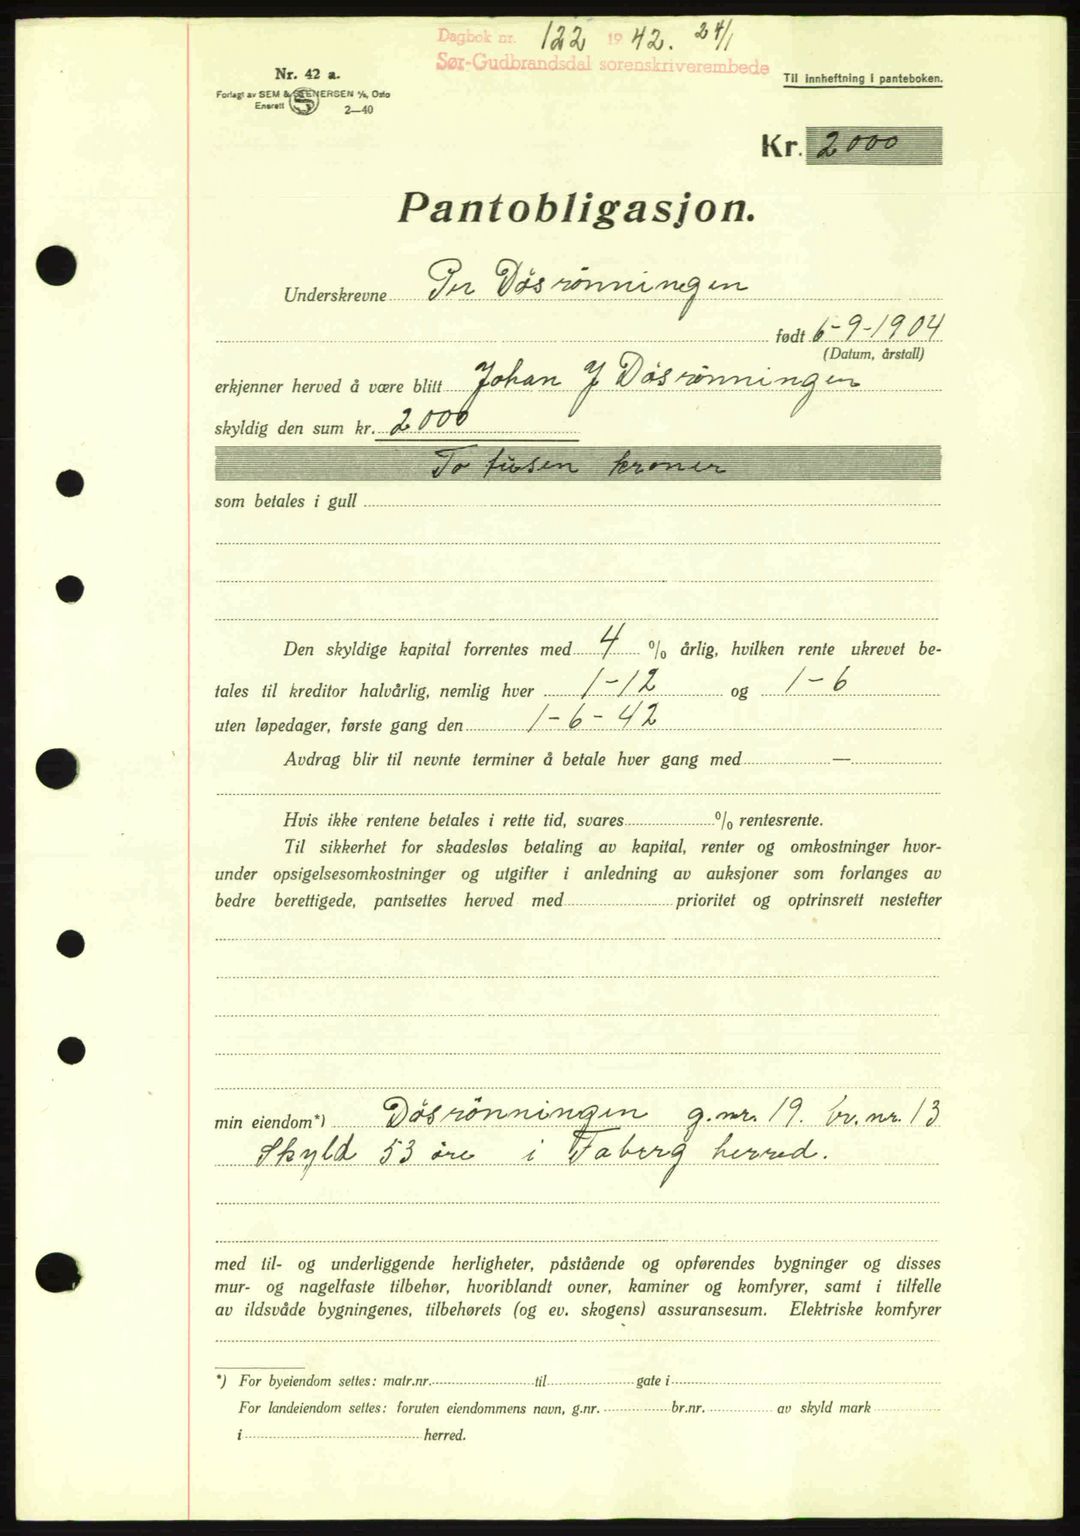 Dagbok nr. 122 1942. 24/1
Sør-Gudbrandsdal sorenskriverembede
Nr. 42 a.
Forlagt av SEM & STENERSEN A/S, Oslo
Enerett
2—40
Til innheftning i panteboken.
Kr. 2000
Pantobligasjon.
Underskrevne Per Døsrönningen
født 6-9-1904
(Datum, årstall)
erkjenner herved å være blitt Johan J Døsrönningen
skyldig den sum kr. 2000
To tusen kroner
som betales i gull
Den skyldige kapital forrentes med 4 % årlig, hvilken rente ukrevet be-
tales til kreditor halvårlig, nemlig hver 1-12 og 1-6
uten løpedager, første gang den 1-6-42
Avdrag blir til nevnte terminer å betale hver gang med —
Hvis ikke rentene betales i rette tid, svares % rentesrente.
Til sikkerhet for skadesløs betaling av kapital, renter og omkostninger hvor-
under opsigelsesomkostninger og utgifter i anledning av auksjoner som forlanges av
bedre berettigede, pantsettes herved med prioritet og optrinsrett nestefter
min eiendom*) Døsrönningen g.nr. 19. br.nr. 13
Skyld 53 øre i Faberg herred.
med til- og underliggende herligheter, påstående og opførendes bygninger og disses
mur- og nagelfaste tilbehør, hvoriblandt ovner, kaminer og komfyrer, samt i tilfelle
av ildsvåde bygningenes, tilbehørets (og ev. skogens) assuransesum. Elektriske komfyrer
*) For byeiendom settes: matr.nr. til gate i
For landeiendom settes: foruten eiendommens navn, g.nr. br.nr. av skyld mark
i herred.